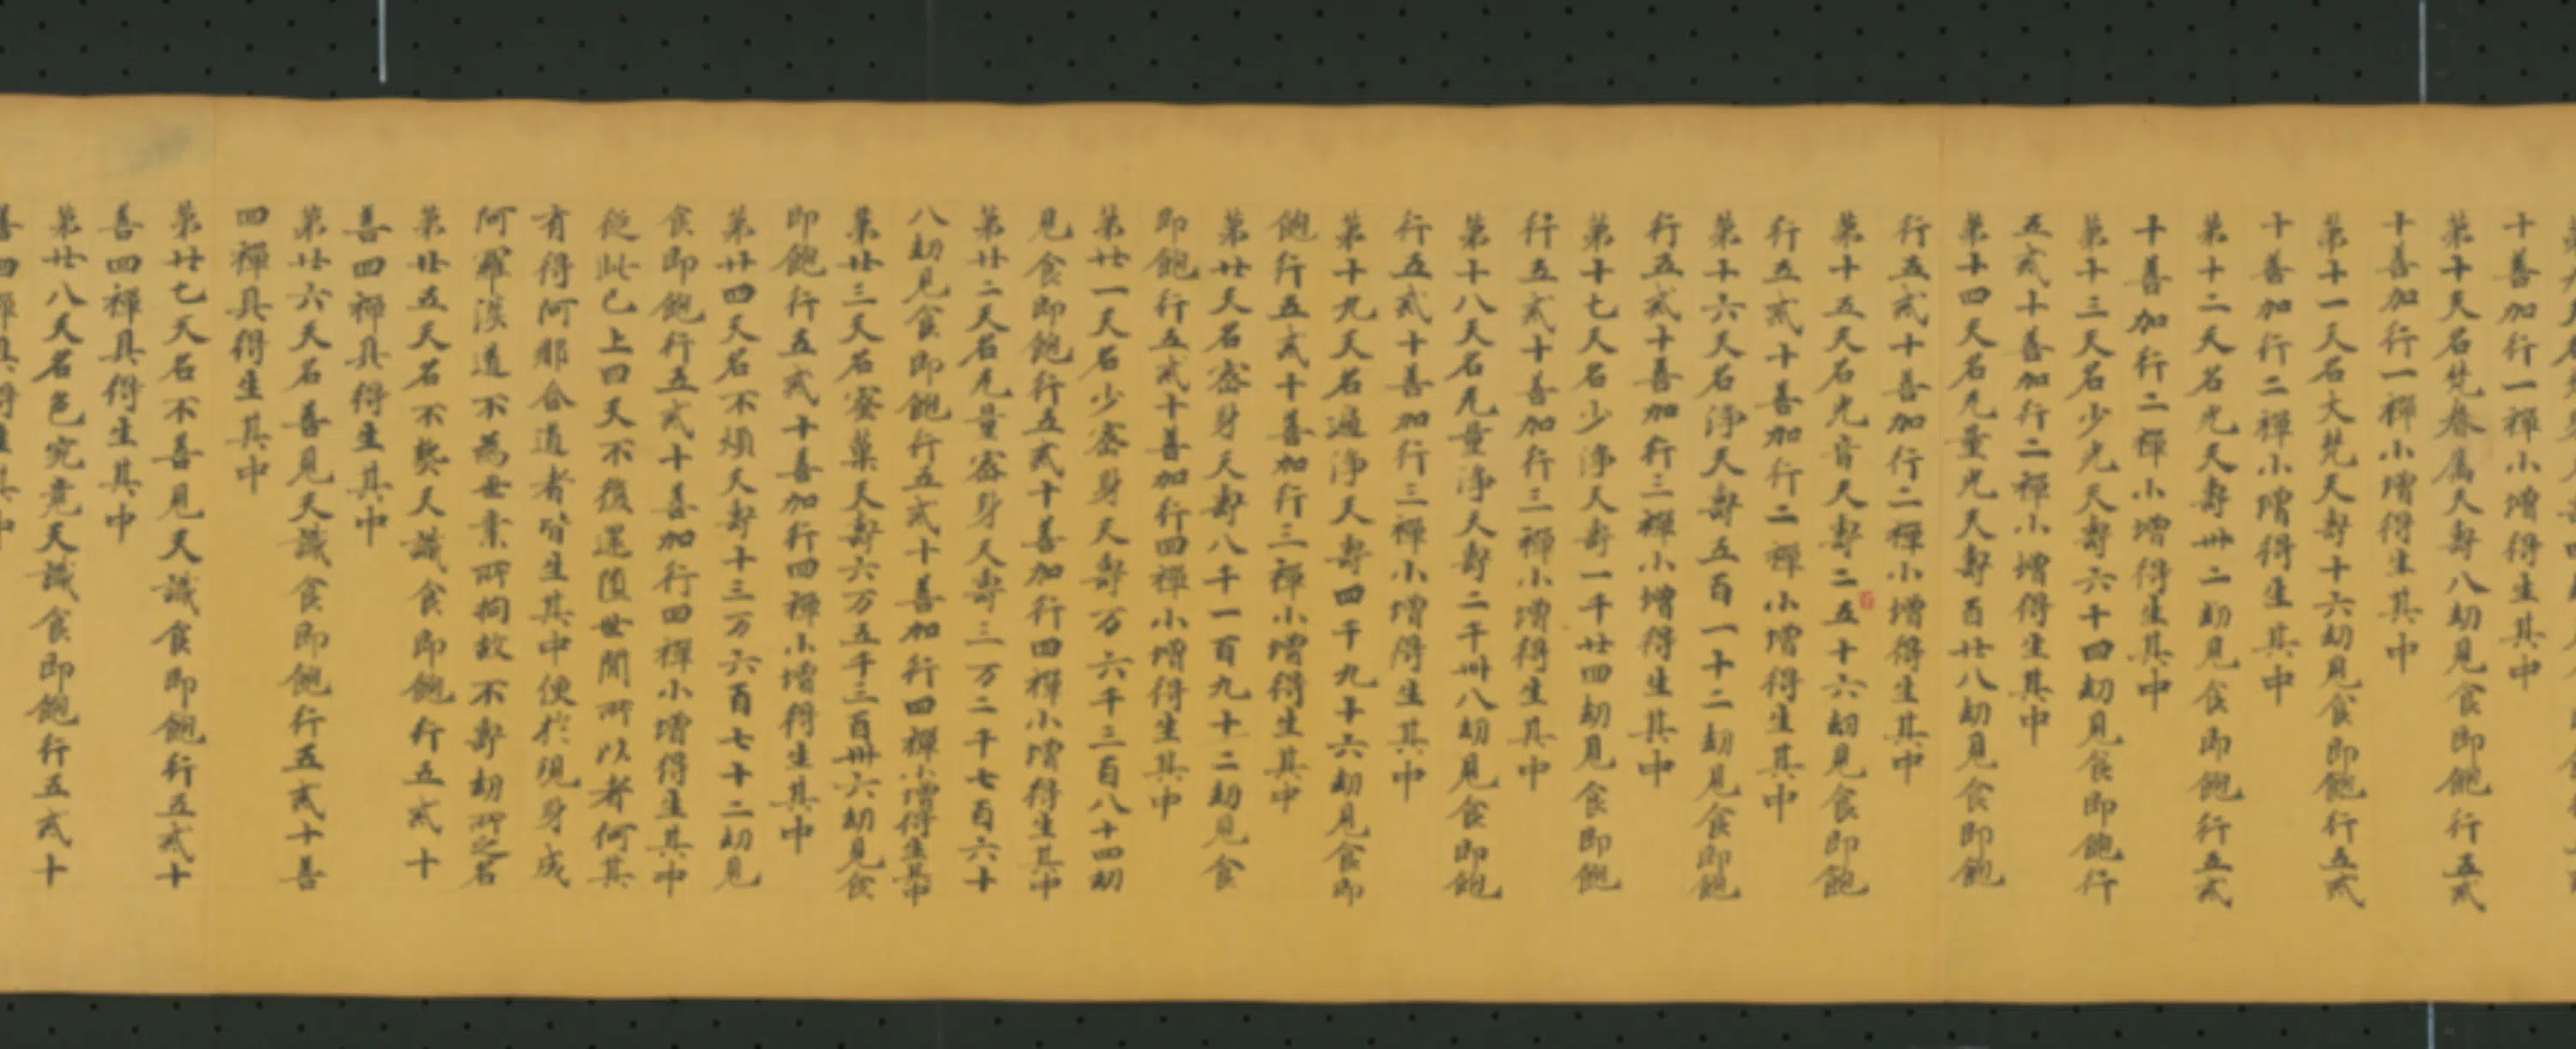 十善加行一禪小增得生其中
第十天名梵眷属天壽八劫見食即飽行五貳
十善加行一禪小增得生其中
第十一天名大梵天壽十六劫見食即飽行五貳
十善加行二禪小增得生其中
第十二天名光天壽卌二劫見食即飽行五貳
十善加行二禪小增得生其中
第十三天名少光天壽六十四劫見食即飽行
五貳十善加行二禪小增得生其中
第十四天名无量光天壽百廿八劫見食即飽
行五貳十善加行二禪小增得生其中
第十五天名光音天壽二百五十六劫見食即飽
行五貳十善加行二禪小增得生其中
第十六天名淨天壽五百一十二劫見食即飽
行五貳十善加行三禪小增得生其中
第十七天名少淨天壽一千廿四劫見食即飽
行五貳十善加行三禪小增得生其中
第十八天名无量淨天壽二千卌八劫見食即飽
行五貳十善加行三禪小增得生其中
第十九天名遍淨天壽四千九十六劫見食即
飽行五貳十善加行三禪小增得生其中
第廿天名密身天壽八千一百九十二劫見食
即飽行五貳十善加行四禪小增得生其中
第廿一天名少密身天壽万六千三百八十四劫
見食即飽行五貳十善加行四禪小增得生其中
第廿二天名无量密身天壽三万二千七百六十
八劫見食即飽行五貳十善加行四禪小增得生其中
第廿三天名密菓天壽六万五千三百卌六劫見食
即飽行五貳十善加行四禪小增得生其中
第廿四天名不煩天壽十三万六百七十二劫見
食即飽行五貳十善加行四禪小增得生其中
從此已上四天不復還墮世間所以者何其
有得阿那含道者皆生其中便於現身成
阿羅漢道不為世業所拘故不壽劫所之名
第廿五天名不熱天識食即飽行五貳十
善四禪具得生其中
第廿六天名善見天識食即飽行五貳十善
四禪具得生其中
第廿七天名不善見天識食即飽行五貳十
善四禪具得生其中
第廿八天名色究竟天識食即飽行五貳十
善四禪具得生其中